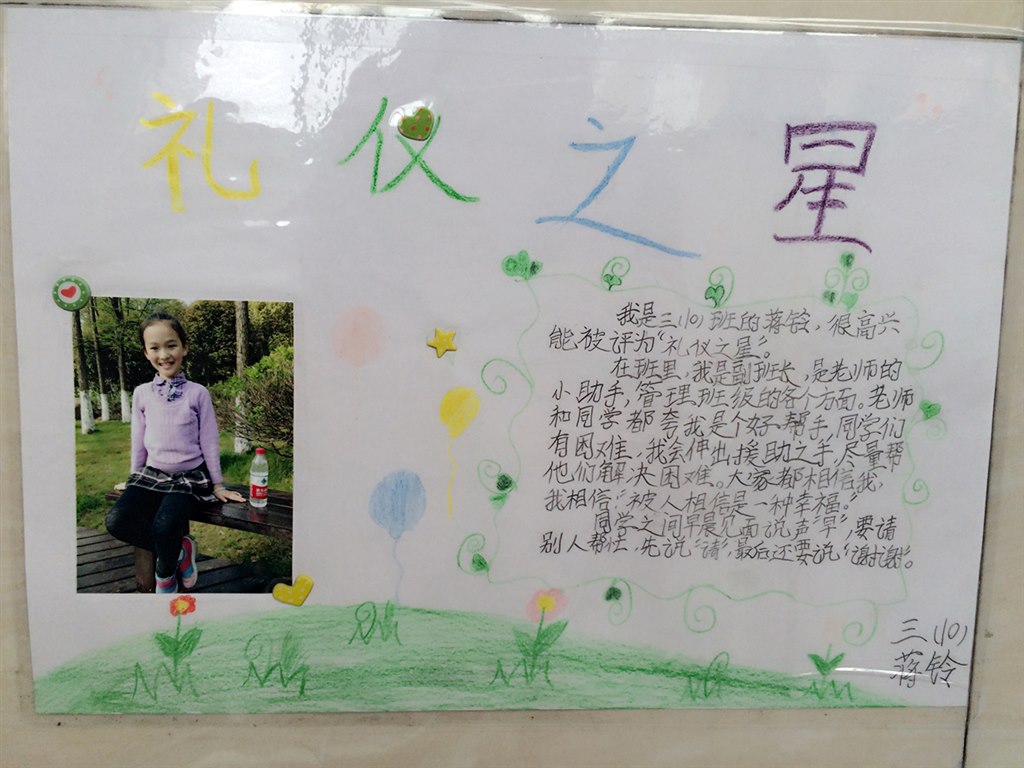 礼仪之星
我是三(10)班的蒋铃，很高兴
能被评为“礼仪之星”。
在班里，我是副班长，是老师的
小助手，管理班级的各个方面。老师
和同学都夸我是个好帮手，同学们
有困难，我会伸出援助之手，尽量帮
他们解决困难。大家都相信我，
我相信：“被人相信是一种幸福。”
同学之间早晨见面说声“早”，要请
别人帮忙，先说“请”，最后还要说“谢谢”。
三(10)
蒋铃